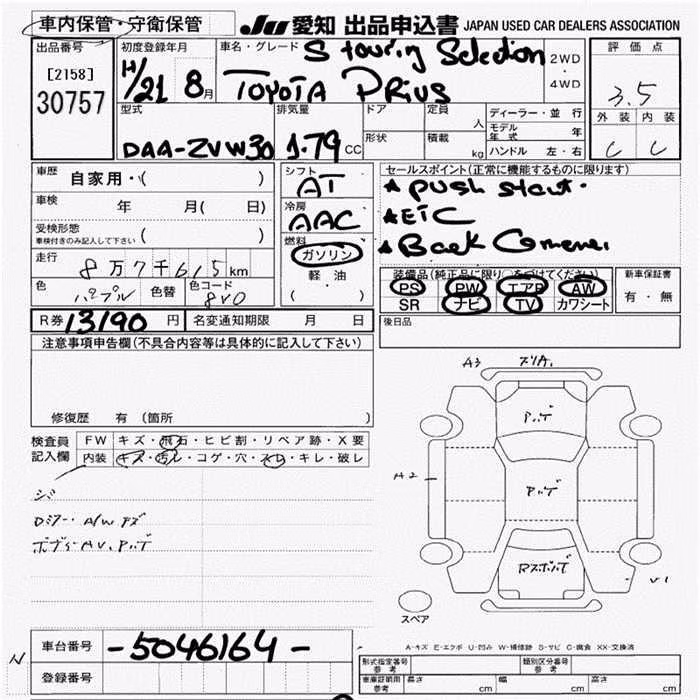 車内保管・守衛保管 JU 愛知 出品申込書 JAPAN USED CAR DEALERS ASSOCIATION
出品番号 初度登録年月 車名・グレード S touring Selection 2WD ・ 4WD 評価点
[2158] 30757 H/21 8月 TOYOTA PRIUS 3.5
型式 排気量 ドア 定員 人 ディーラー・並行 外装 内装
モデル年式 年
DAA-ZVW30 1.79 CC 形状 積載 kg ハンドル 左・右 C C
車歴 自家用・( ) シフト AT セールスポイント(正常に機能するものに限ります)
車検 年 月( 日) 冷房 AAC ★ push start.
受検形態 車検付きのみ記入して下さい ( ) ★ ETC
燃料 ガソリン ★ Back Camera.
走行 8万7千615km 軽油 ( )
装備品(純正品に限り○をつけてください) 新車保証書
色 パープル 色替 色コード 8V0 PS PW エアB AW 有・無
SR ナビ TV カワシート
R券 13190 円 名変通知期限 月 日 後日品
注意事項申告欄(不具合内容等は具体的に記入して下さい)
A3 スリA.
修復歴 有 (箇所 )
検査員 記入欄 FW キズ・飛石・ヒビ割・リペア跡・X要
内装 キズ・汚レ・コゲ・穴・スレ・キレ・破レ
A2
シミ
ボディーAV.
V1
スペア
A-キズ E-エクボ U-凹み W-補修跡 S-サビ C-腐食 XX-交換済
車台番号 -5046164-
登録番号
形式指定番号 参考 類別区分番号 参考
車庫証明用 参考 長さ cm 幅 cm 高さ cm